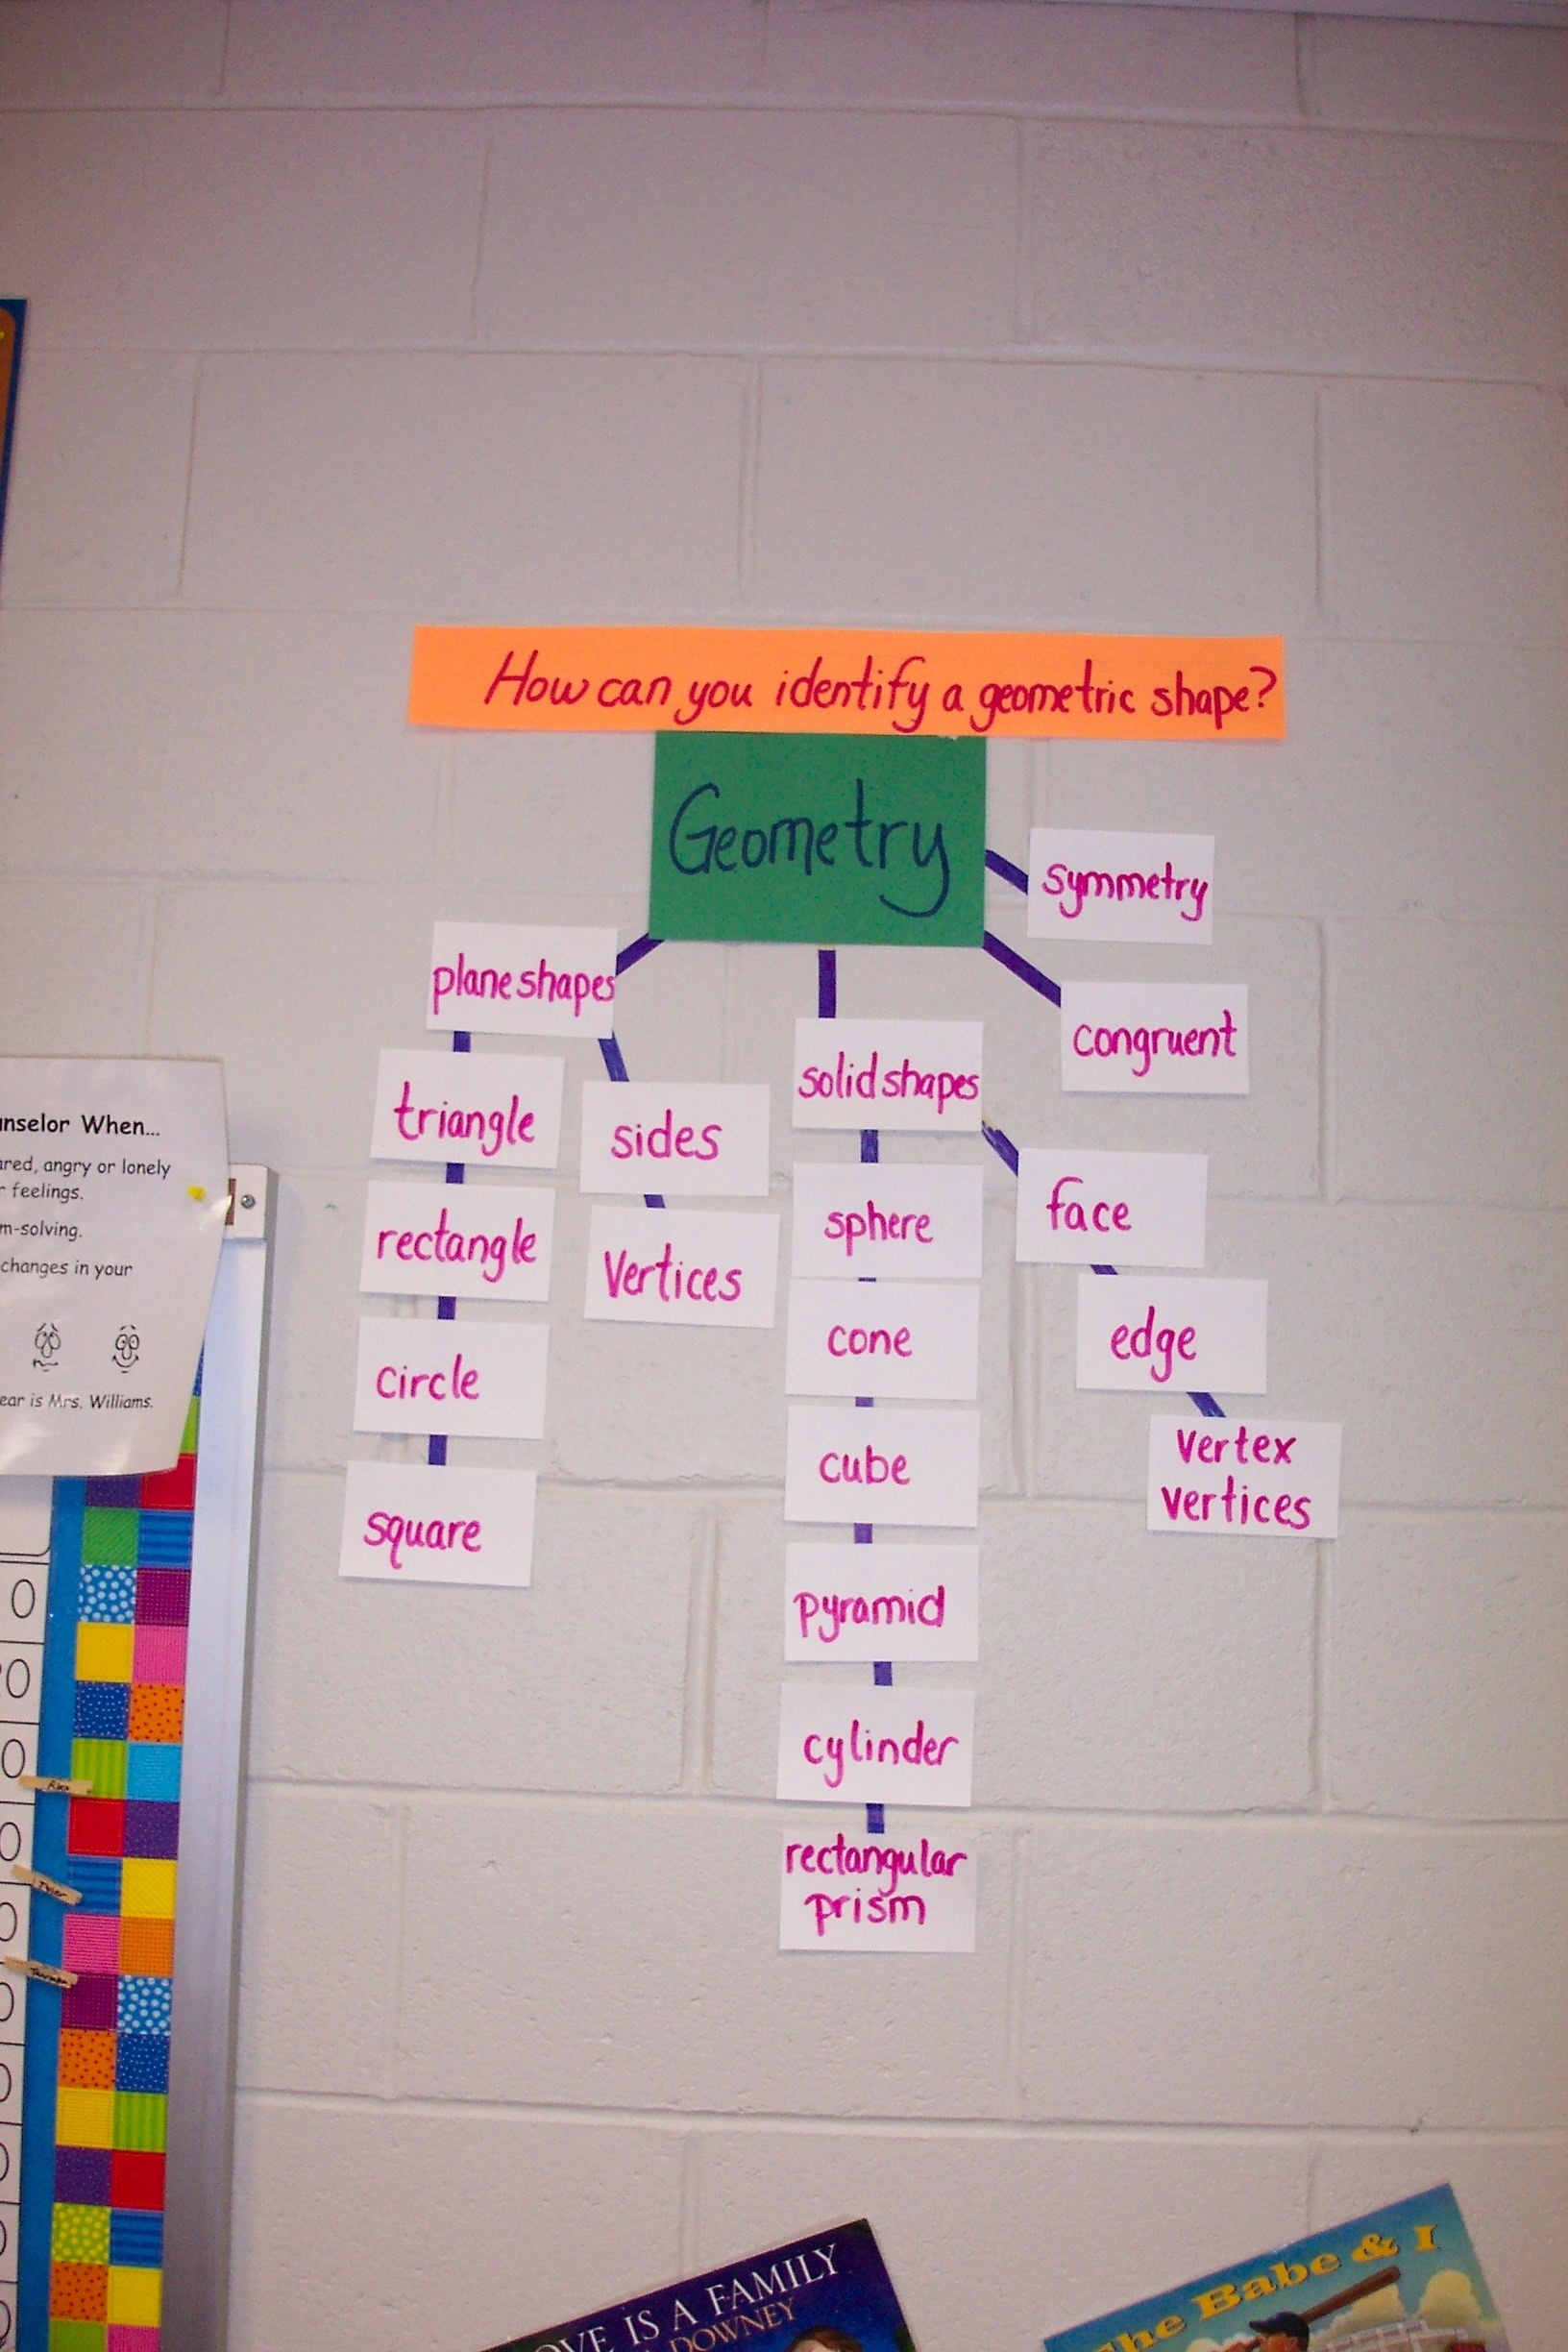 How can you identify a geometric shape?
Geometry
symmetry
congruent
plane shapes
triangle
rectangle
circle
square
sides
Vertices
solid shapes
sphere
cone
cube
pyramid
cylinder
rectangular
prism
face
edge
vertex
vertices
When...
angry or lonely
feelings.
changes in your
is Mrs. Williams.
0
0
0
0
0
IS A FAMILY
DOWNEY
Babe & I